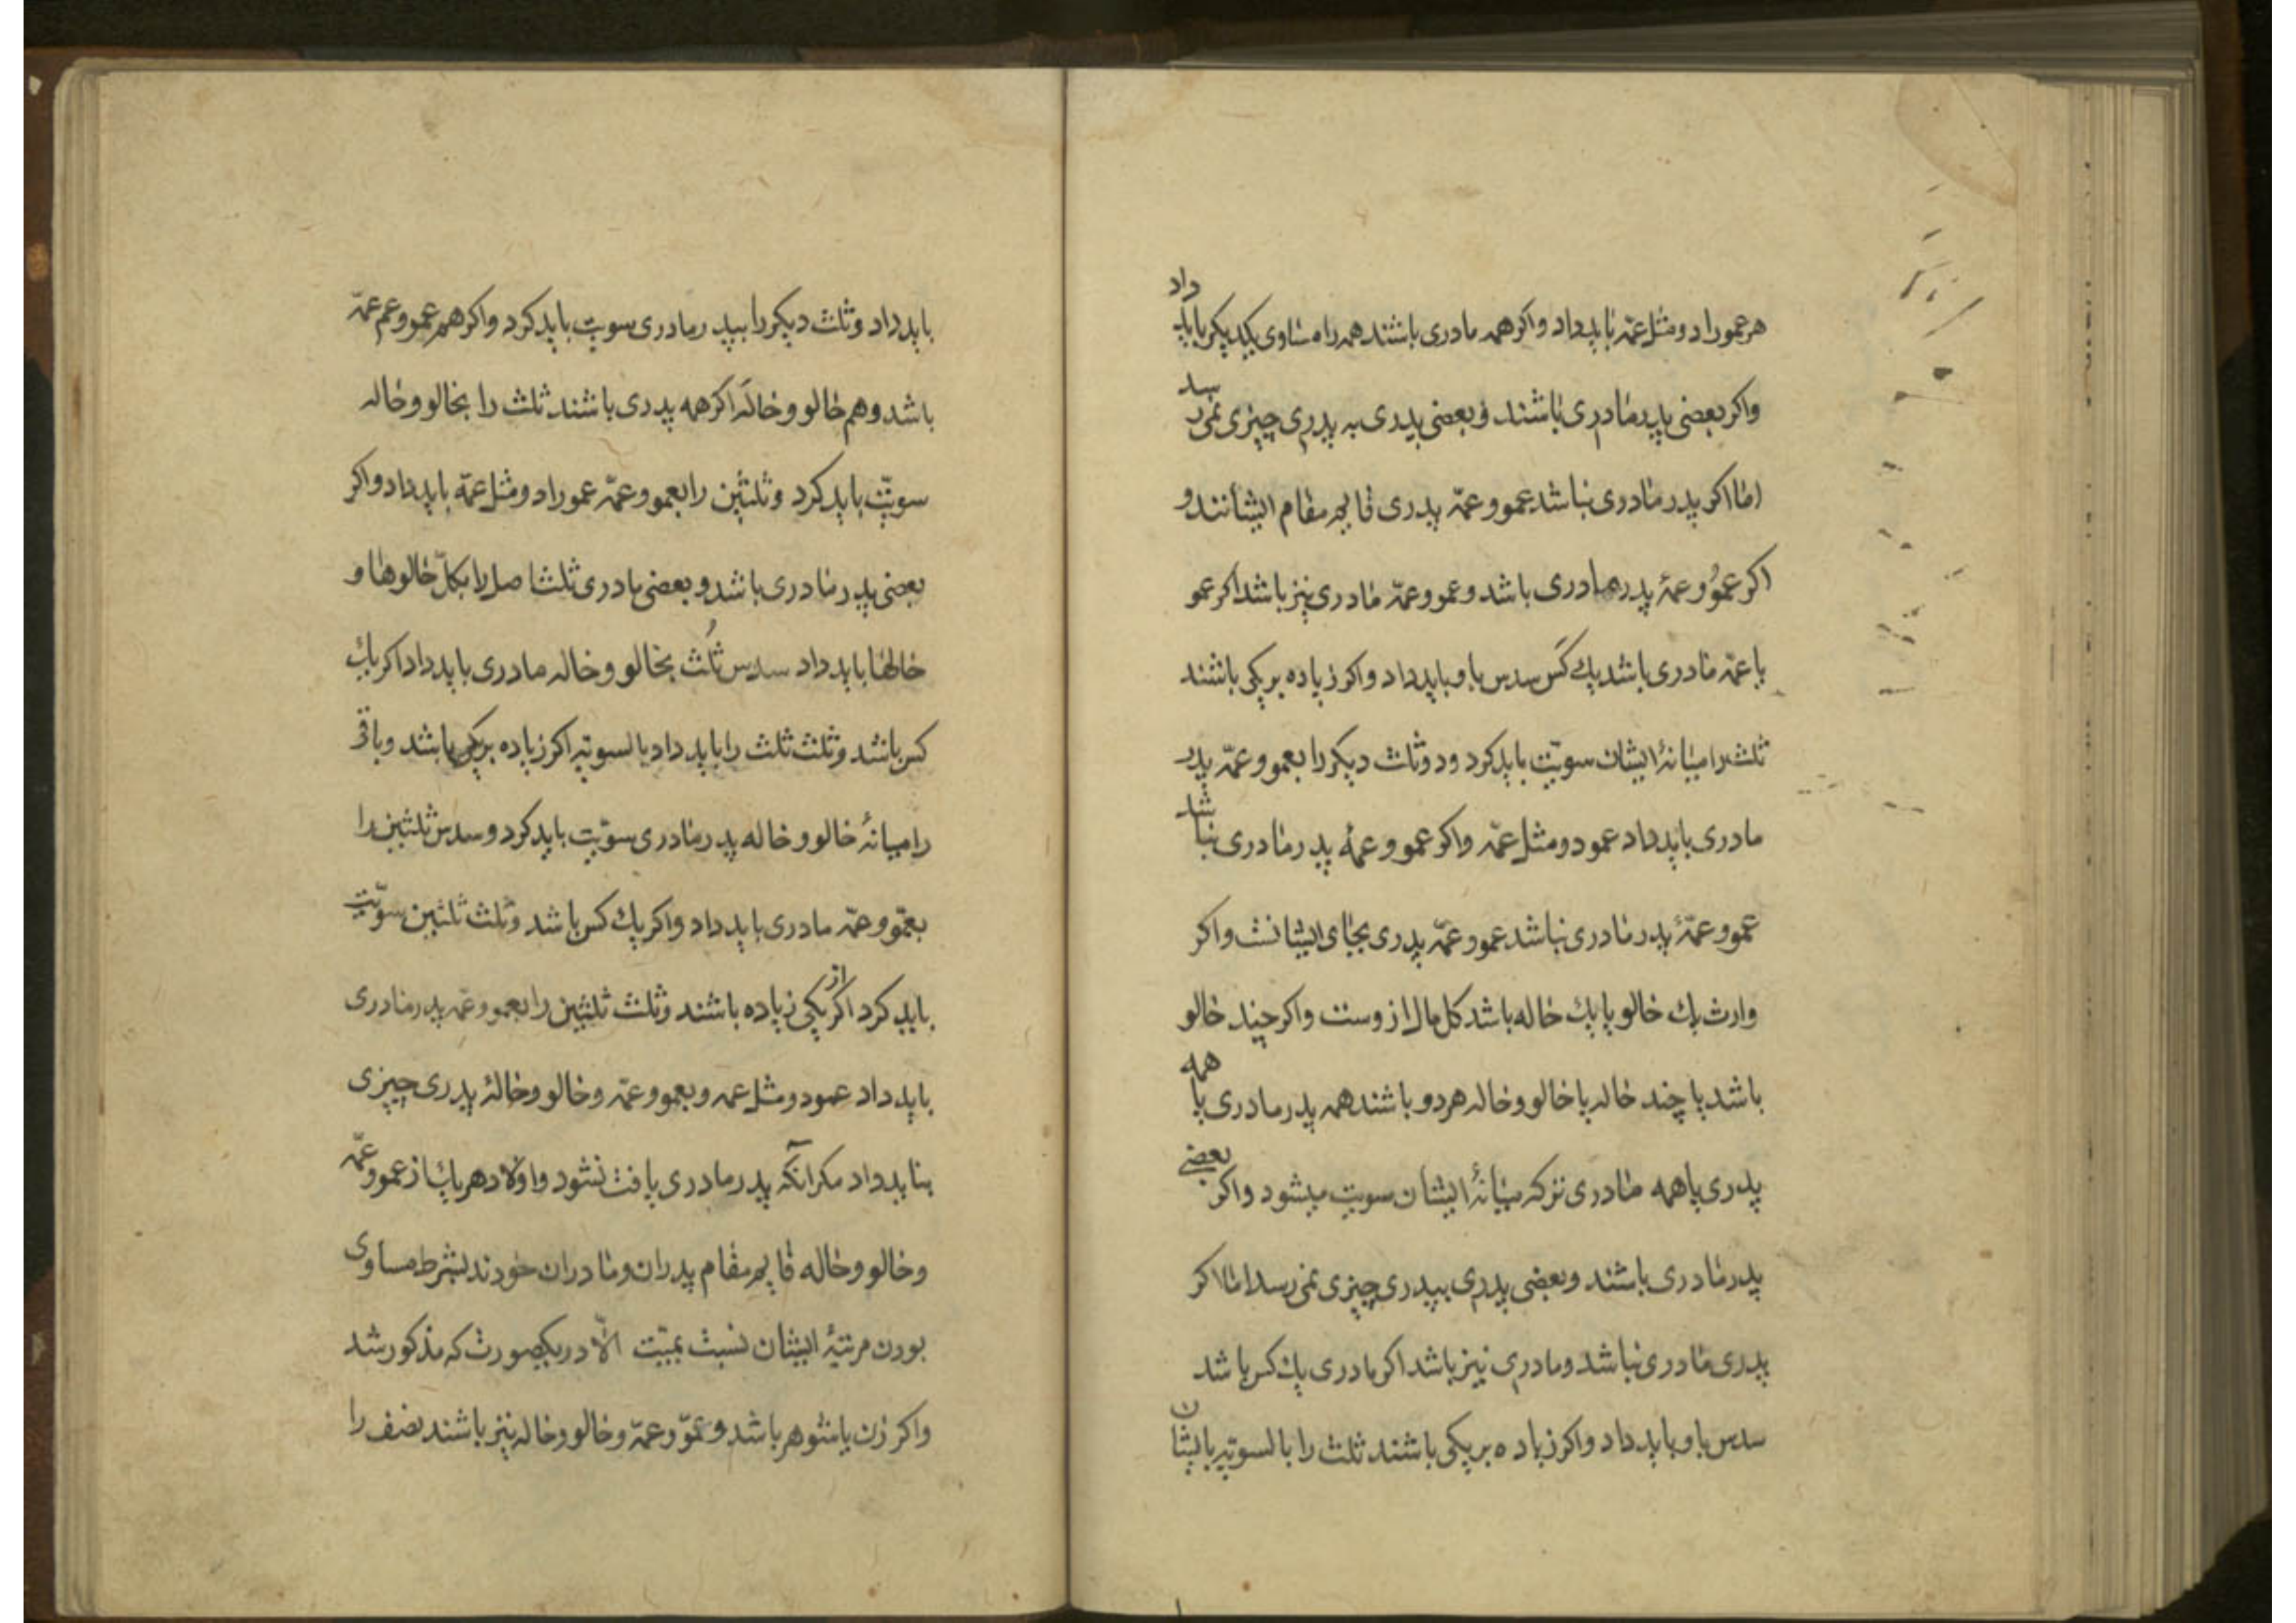 هر عمو را دو مثل عمّه باید داد و اکر همه مادری باشند همه را مساوی یکدیکر باید داد
و اکر بعضی پدر مادری باشند و بعضی پدری به پدری چیزی نمیرسد
اما اکر پدر مادری نباشد عمو و عمّه پدری قایم مقام ایشانند و
اکر عمو و عمۀ پدر مادری باشد و عمو و عمّه مادری نیز باشد اکر عمو
یا عمّه مادری باشد یك کس سدس باو باید داد و اکر زیاده بر یکی باشند
ثلث را میانۀ ایشان سویّت باید کرد و دو ثلث دیکر را بعمو و عمّه پدر
مادری باید داد عمو دو مثل عمّه و اکر عمو و عمۀ پدر مادری نباشد
عمو و عمّۀ پدر مادری نباشد عمو و عمّه پدری بجای ایشانست و اکر
وارث یك خالو یا یك خاله باشد کل مال از وست و اکر چند خالو
باشد یا چند خاله یا خالو و خاله هر دو باشند همه پدر مادری یا همه
پدری یا همه مادری ترکه میانۀ ایشان سویت میشود و اکر بعضی
پدر مادری باشند و بعضی پدری بپدری چیزی نمی رسد اما اکر
پدری مادری نباشد و مادری نیز باشد اکر مادری یك کس باشد
سدس باو باید داد و اکر زیاده بر یکی باشند ثلث را بالسویّه بایشان
باید داد و ثلث دیکر را بپدر مادری سویت باید کرد و اکر هم عمو و عم عمّه
باشد و هم خالو و خاله اکر همه پدری باشند ثلث را بخالو و خاله
سویّت باید کرد و ثلثین را بعمو و عمّه عمو را دو مثل عمّه باید داد و اکر
بعضی پدر مادری باشد و بعضی مادری ثلث اصل را بکلّ خالوها و
خالها باید داد سدس ثلث بخالو و خاله مادری باید داد اکر یك
کس باشد و ثلث ثلث را باید داد بالسویّه اکر زیاده بر یکی باشد و باقی
را میانۀ خالو و خاله پدر مادری سویّت باید کرد و سدس ثلثین را
بعمّو و عمّه مادری باید داد و اکر یك کس باشد و ثلث ثلثین سویّت
باید کرد اکر از یکی زیاده باشند و ثلث ثلثین را بعمو و عمّه پدر مادری
باید داد عمو دو مثل عمه و بعمو و عمّه و خالو و خالۀ پدری چیزی
بناید داد مکر آنکه پدر مادری یافت نشود و اولاد هر یك از عمو و عمّه
و خالو و خاله قایم مقام پدران و مادران خودند بشرط مساوی
بودن مرتبۀ ایشان نسبت بمیّت الّا در یکصورت که مذکور شد
و اکر زن یا شوهر باشد و عمّو و عمّه و خالو و خاله نیز باشند نصف را